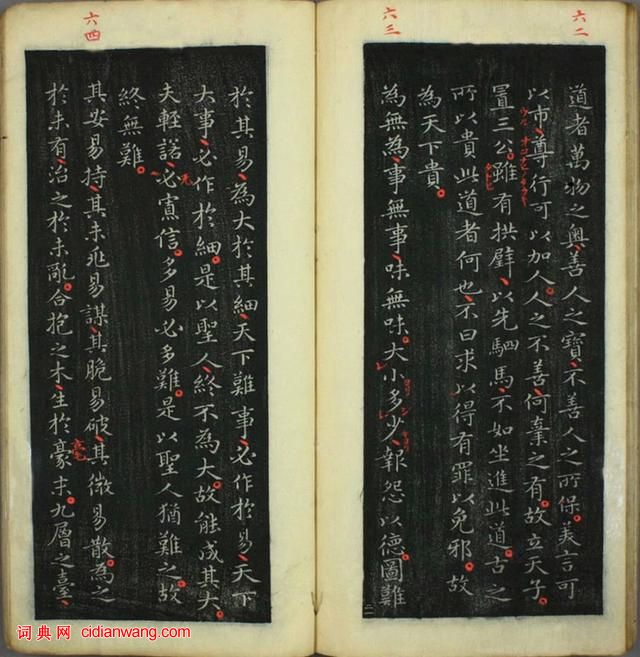 六二
六三
道者萬物之奧善人之寶不善人之所保美言可
以市尊行可以加人人之不善何棄之有故立天子
置三公雖有拱璧以先駟馬不如坐進此道古之
所以貴此道者何也不曰求以得有罪以免邪故
為天下貴
為無為事無事味無味大小多少報怨以德圖難
六四
於其易為大於其細天下難事必作於易天下
大事必作於細是以聖人終不為大故能成其大
夫輕諾必寡信多易必多難是以聖人猶難之故
終無難
其安易持其未兆易謀其脆易破其微易散為之
於未有治之於未亂合抱之木生於豪末九層之臺
词典网 cidianwang.com